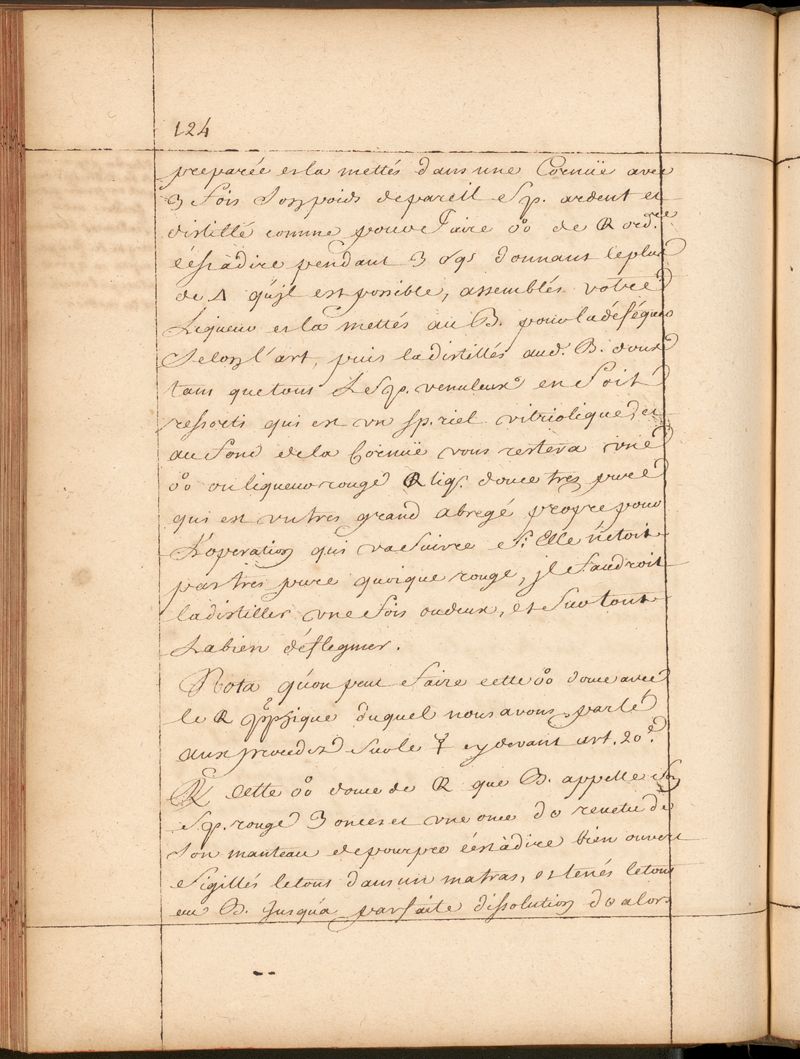 124
preparée et la mettés dans une Cornüe avec
3 fois son poids de pareil Sp. ardent et
distillé comme pour faire oo de R ord.re
c'est à dire pendant 3 donnant le plus
de △ qu'jl est possible, assemblés votre
Liqueur et la mettés au B. pour la deféquer
Selon l'art, puis la distillés aud. B. doux
tans que tout Le Sp. venuleux en Soit
ressorti qui est vn sp.riel vitriolique, et
au fond de la Cornüe vous restera vne
oo ou liqueur rouge R liq. douce tres pure
qui est vn tres grand abregé propre pour
L'operation qui va Suivre Si Elle n'étoit
pas tres pure quoique rouge, jl faudroit
la distiller vne fois ou deux, et Sur tout
La bien déflegmer.
Nota qu'on peut faire cette oo douce avec
le R duquel nous avons parlé
aux procedez Sur le cy devant art. 20e.
cette oo douce de R que B. appelle Son
Sp. rouge 3 onces et vne once d'o revetu de
Son manteau de pourpre c'est à dire bien ouvert
Sigillés le tout dans un matras, et tenés le tout
au B. Jusqu'à parfaite dissolution d'o alors